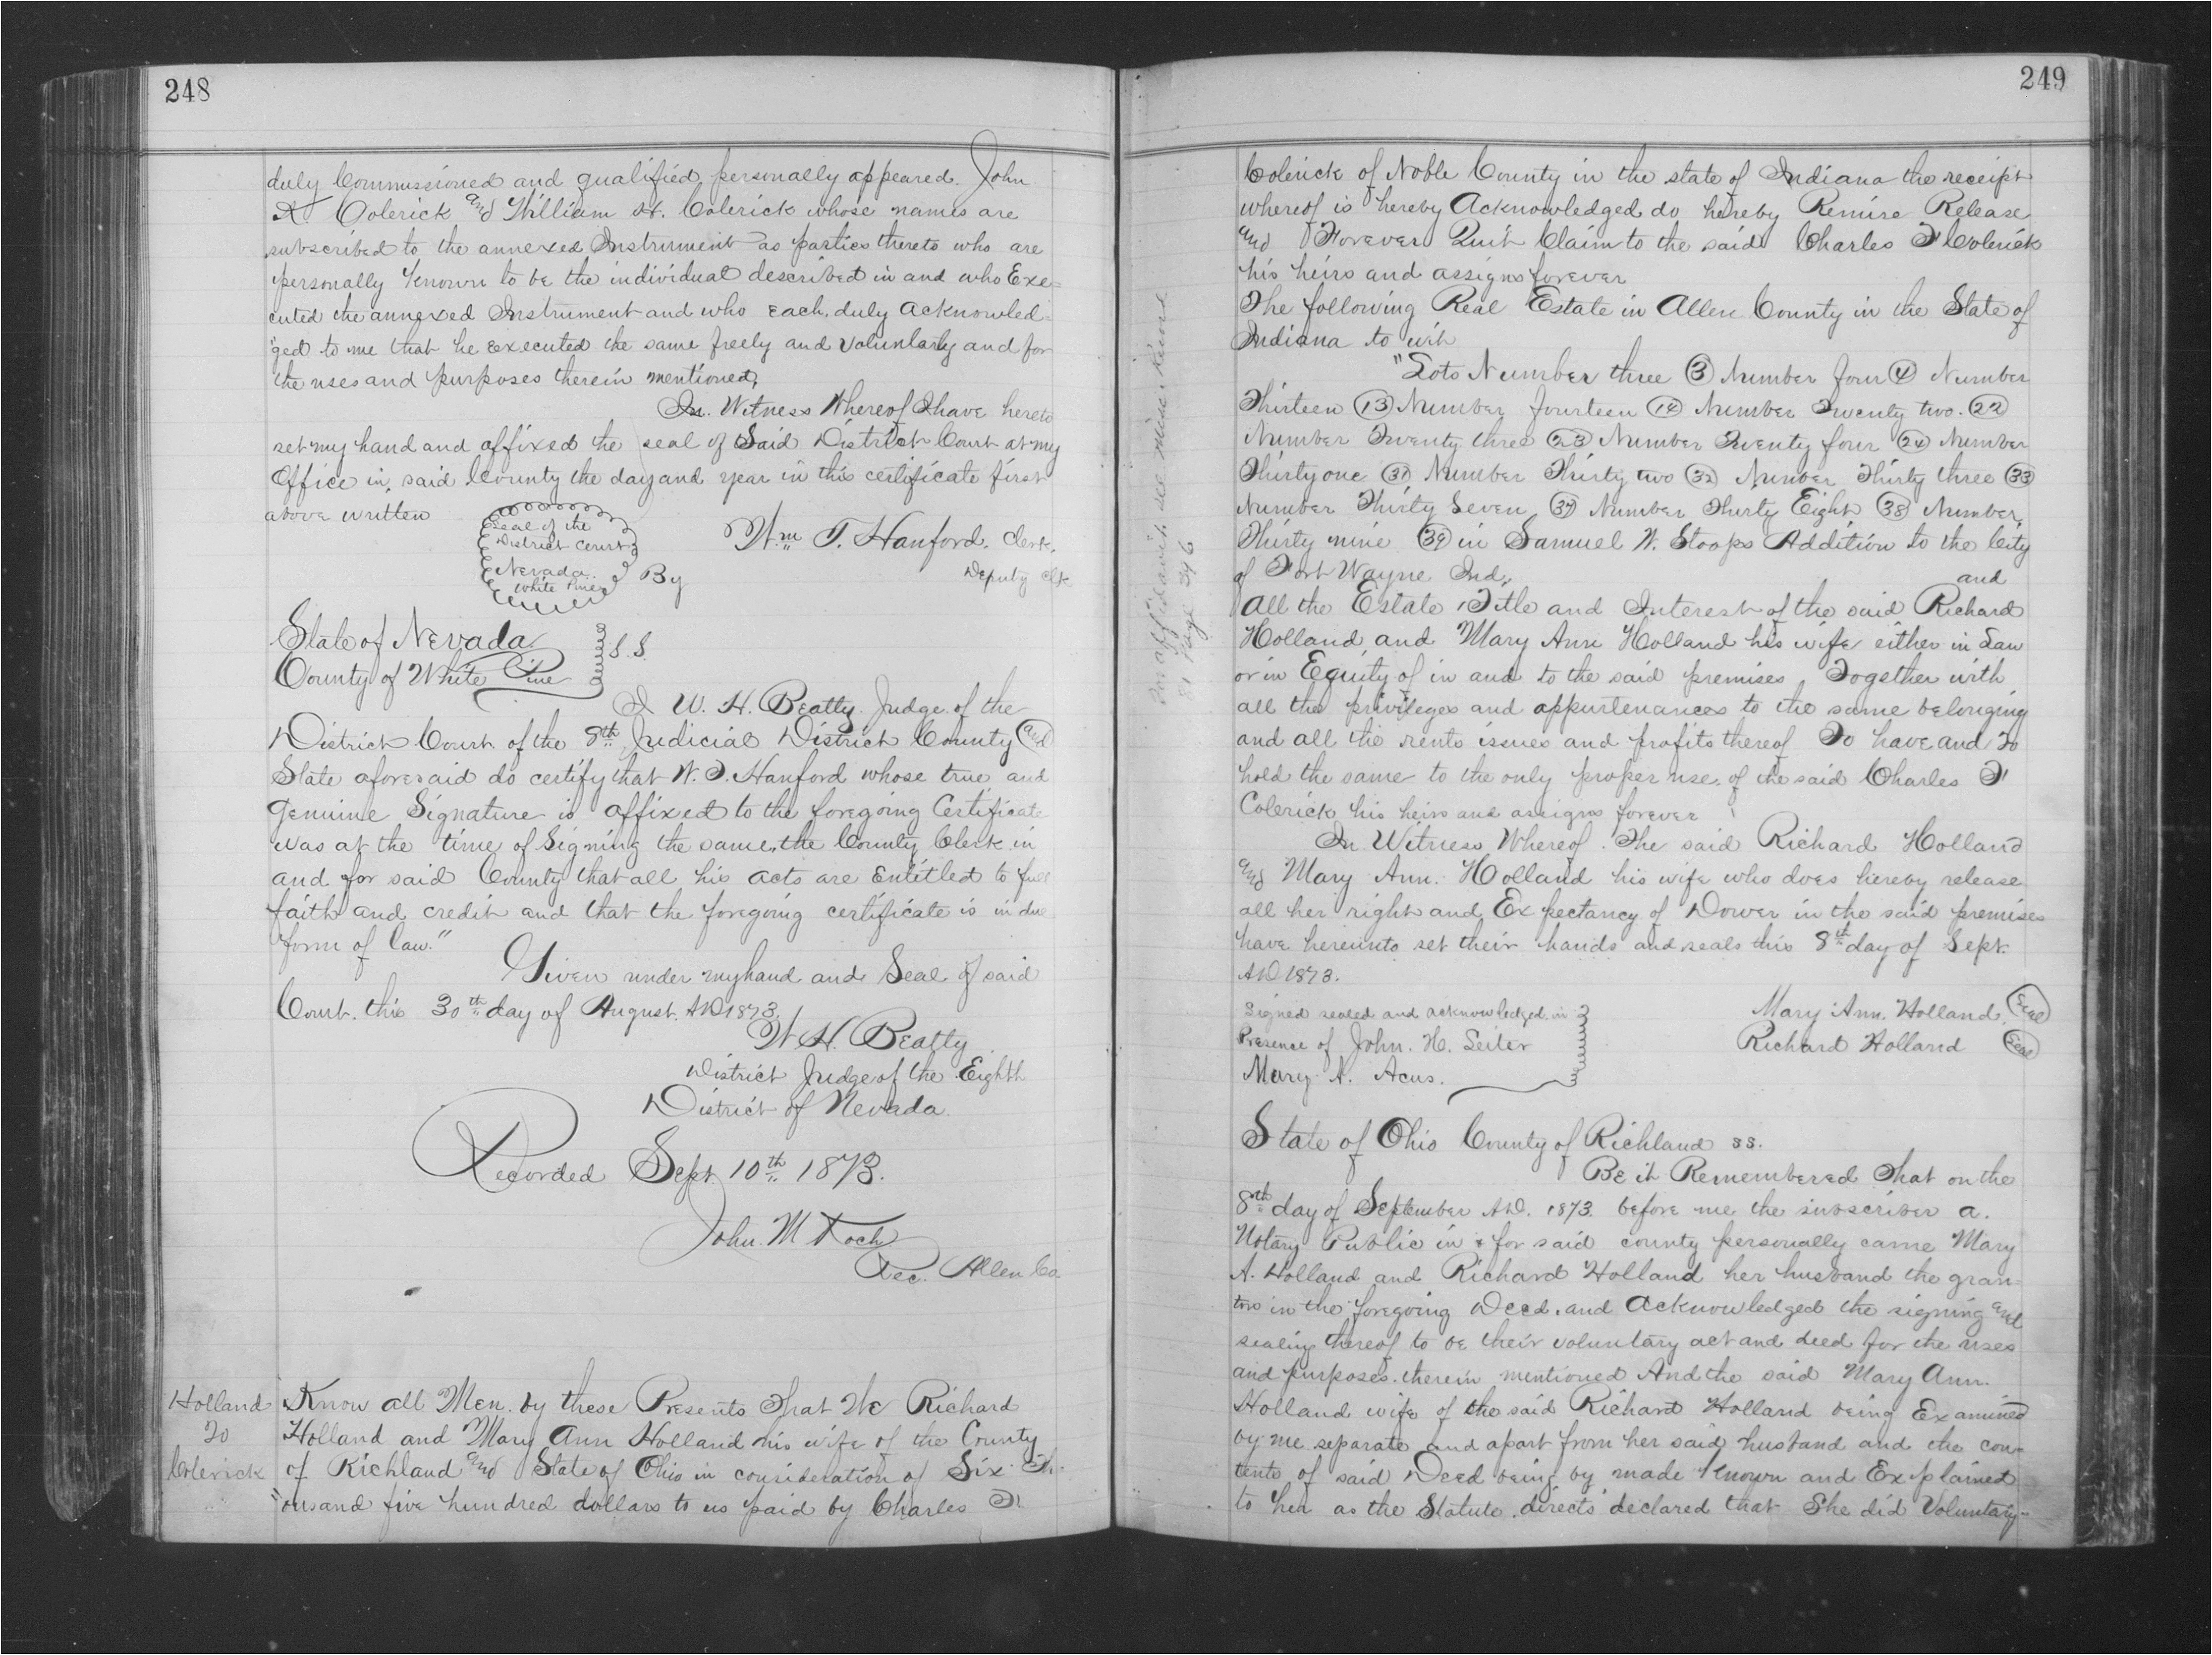 248
duly Commissioned and qualified personally appeared John
A Colerick and William H. Colerick whose names are
subscribed to the annexed Instrument as parties thereto who are
personally known to be the individual described in and who Exe=
cuted the annexed Instrument and who each, duly acknowled=
ged to me that he executed the same freely and voluntarily and for
the uses and purposes therein mentioned,
In. Witness Whereof I have hereto
set my hand and affixed the seal of Said District Court at my
Office in, said County the day and year in this certificate first
above written
Seal of the
District Court
Nevada
White Pine
Wm T. Hanford, Clerk,
By
Deputy Clk
State of Nevada
County of White Pine
S.S.
I W. H. Beatty Judge of the
District Court of the 8th Judicial District County and
State aforesaid do certify that W. T. Hanford whose true and
Genuine Signature is affixed to the foregoing Certificate
was at the time of Signing the same, the County Clerk in
and for said County that all his acts are Entitled to full
faith and credit and that the foregoing certificate is in due
form of law."
Given under my hand and Seal of said
Court. this 30th day of August. AD 1873.
W. H. Beatty
District Judge of the Eighth
District of Nevada.
Recorded Sept 10th 1873.
John. M Koch
Rec. Allen Co
Holland
To
Colerick
Know all Men. by these Presents That We Richard
Holland and Mary Ann Holland his wife of the County
of Richland and State of Ohio in consideration of Six Th-
"ousand five hundred dollars to us paid by Charles F.
249
Colerick of Noble County in the state of Indiana the receipt
whereof is hereby Acknowledged do hereby Remise Release
and Forever Quit Claim to the said Charles F Colerick
his heirs and assigns forever
The following Real Estate in Allen County in the State of
Indiana to wit
"Lots Number three (3) Number four (4) Number
Thirteen (13) Number fourteen (14) Number Twenty two. (22)
Number Twenty three (23) Number Twenty four (24) Number
Thirty one (31) Number Thirty two (32) Number Thirty three (33)
Number Thirty Seven (37) Number Thirty Eight (38) Number
Thirty nine (39) in Samuel W. Stoops Addition to the City
of Fort Wayne Ind,
and
All the Estate, Title and Interest of the said Richard
Holland, and Mary Ann Holland his wife either in Law
or in Equity of in and to the said premises, Together with
all the privileges and appurtenances to the same belonging
and all the rents issues and profits thereof To have and To
hold the same to the only proper use of the said Charles F
Colerick his heirs and assigns forever
In. Witness Whereof. The said Richard Holland
and Mary Ann. Holland his wife who does hereby release
all her right and Expectancy of Dower in the said premises
have hereunto set their hands and seals this 8th day of Sept.
AD 1873.
Signed sealed and acknowledged in
Presence of John. H. Seiler
Mary A. Acus.
Mary Ann. Holland. Seal
Richard Holland Seal
State of Ohio County of Richland ss.
Be it Remembered That on the
8th day of September AD. 1873. before me the subscriber a.
Notary Public in & for said county personally came Mary
A. Holland and Richard Holland her husband the gran=
tors in the foregoing Deed. and acknowledged the signing and
sealing thereof to be their voluntary act and deed for the uses
and purposes. therein mentioned And the said Mary Ann.
Holland wife of the said Richard Holland being Examined
by me separate and apart from her said husband and the con-
tents of said Deed being by made known and Explained
to her as the Statute. directs declared that She did Voluntary-
For affidavit see
81 Page 346